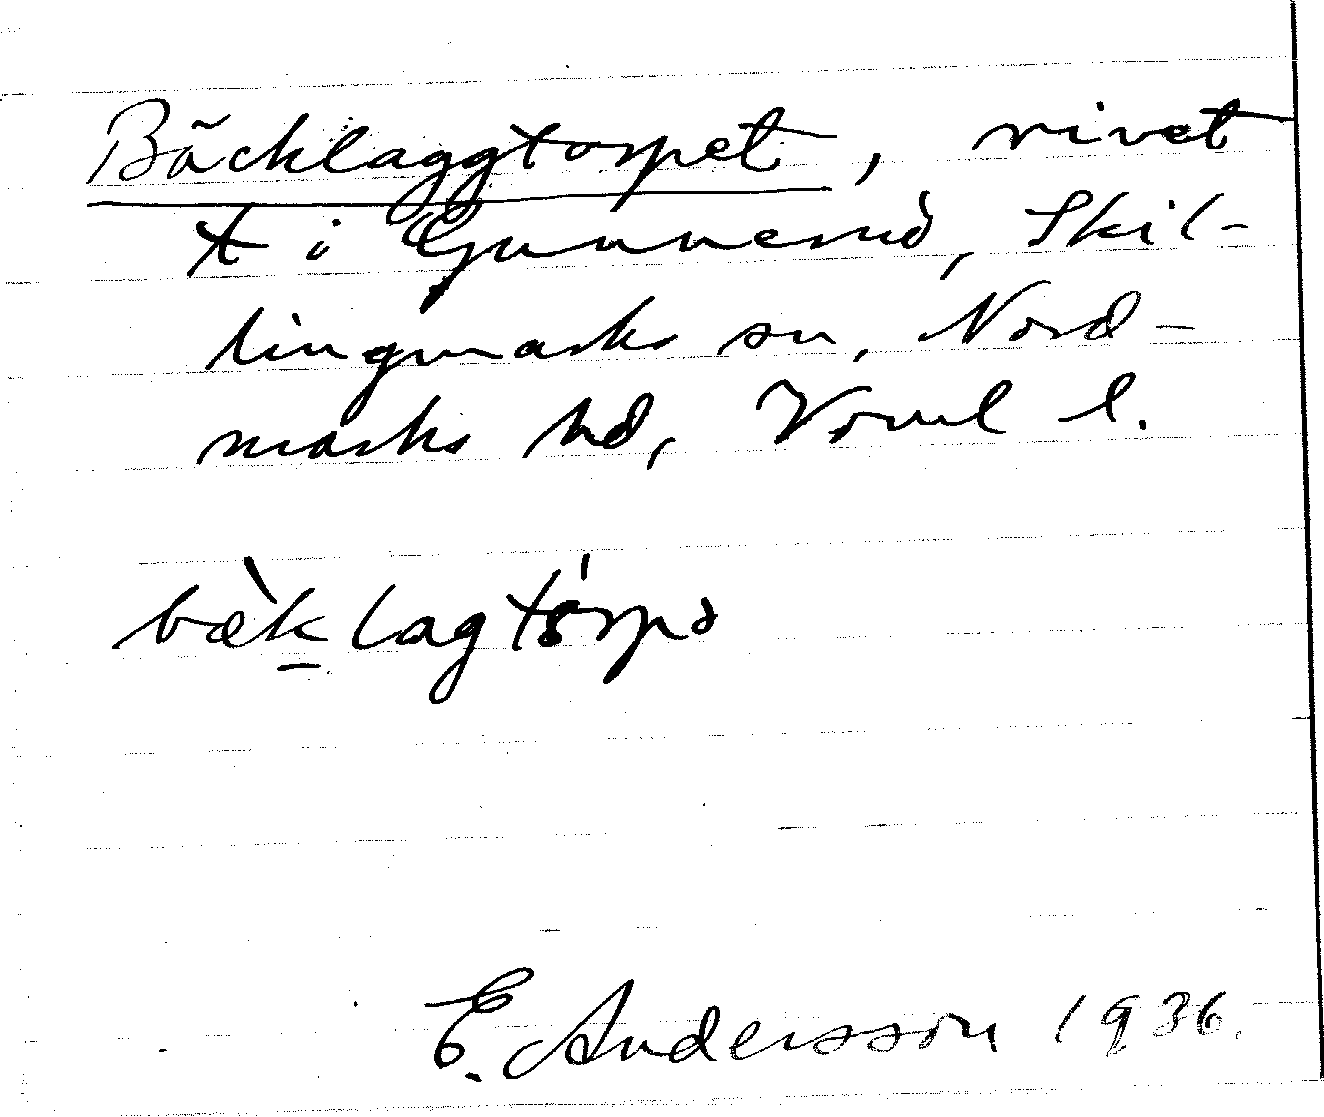 Bäcklaggtorpet, rivet
t i Gunnerud, Skil-
lingmarks sn, Nord-
marks hd, Vrml l.
bæ̀klagtórpə
E. Andersson 1936.